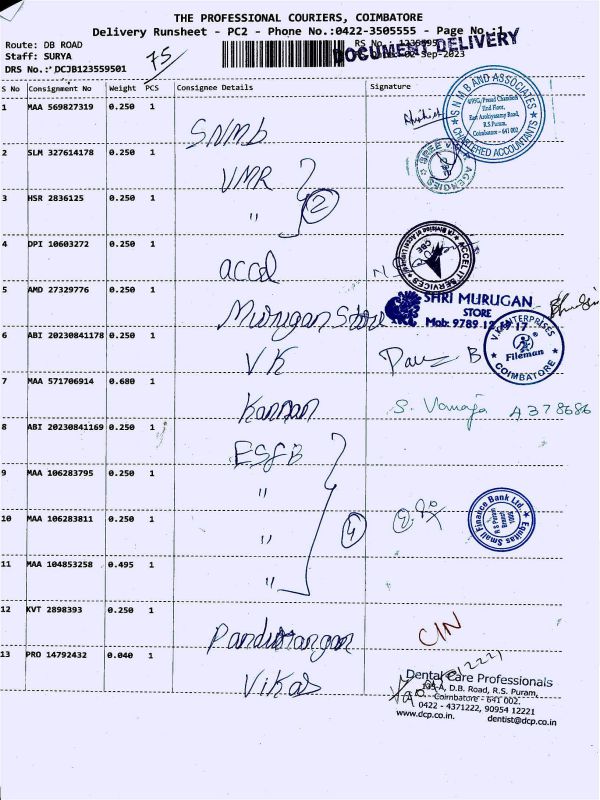 THE PROFESSIONAL COURIERS, COIMBATORE
Delivery Runsheet - PC2 - Phone No.:0422-3505555 - Page No.:1
Route: DB ROAD
Staff: SURYA
DRS No.: DCJB123559501
75
RS No.:
DOCUMENT DELIVERY
02-Sep-2023
S No Consignment No Weight PCS Consignee Details Signature
1 MAA 569827319 0.250 1 SNMb
SNMB AND ASSOCIATES
2nd Floor,
East Arokiyasamy Road,
R.S Puram,
Coimbatore - 641 002
CHARTERED ACCOUNTANTS
2 SLM 327614178 0.250 1 VMR
AGENCIES
3 HSR 2836125 0.250 1 "
2
4 DPI 10603272 0.250 1 accel
ACCEL IT SERVICES
CBE
5 AMD 27329776 0.250 1 Murugan Store
SHRI MURUGAN
STORE
Mob: 9789
6 ABI 20230841178 0.250 1 VK
V.K ENTERPRISES
Fileman
COIMBATORE
7 MAA 571706914 0.680 1 Kannan
A378686
8 ABI 20230841169 0.250 1 ESFB
9 MAA 106283795 0.250 1 "
10 MAA 106283811 0.250 1 "
4
Equitas Small Finance Bank Ltd.
R S Puram
Branch
11 MAA 104853258 0.495 1 "
12 KVT 2898393 0.250 1 Pandurangan
CIN
13 PRO 14792432 0.040 1 Vikas
Dental Care Professionals
D.B. Road, R.S. Puram,
Coimbatore - 641 002.
0422 - 4371222, 90954 12221
www.dcp.co.in. dentist@dcp.co.in